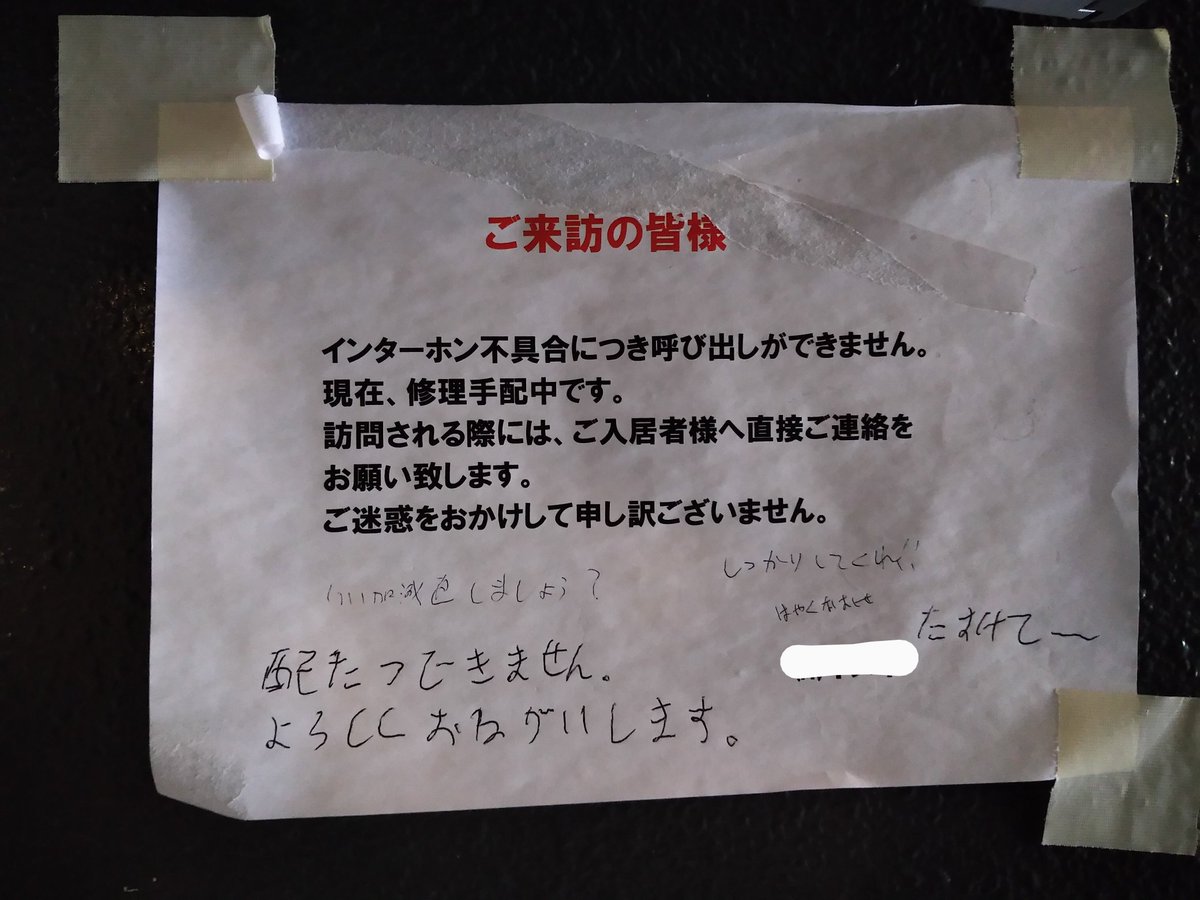 ご来訪の皆様
インターホン不具合につき呼び出しができません。
現在、修理手配中です。
訪問される際には、ご入居者様へ直接ご連絡を
お願い致します。
ご迷惑をおかけして申し訳ございません。
しっかりしてくれ!!
いい加減直しましょう?
はやくなおせ
たすけて〜
配たつできません。
よろしくおねがいします。